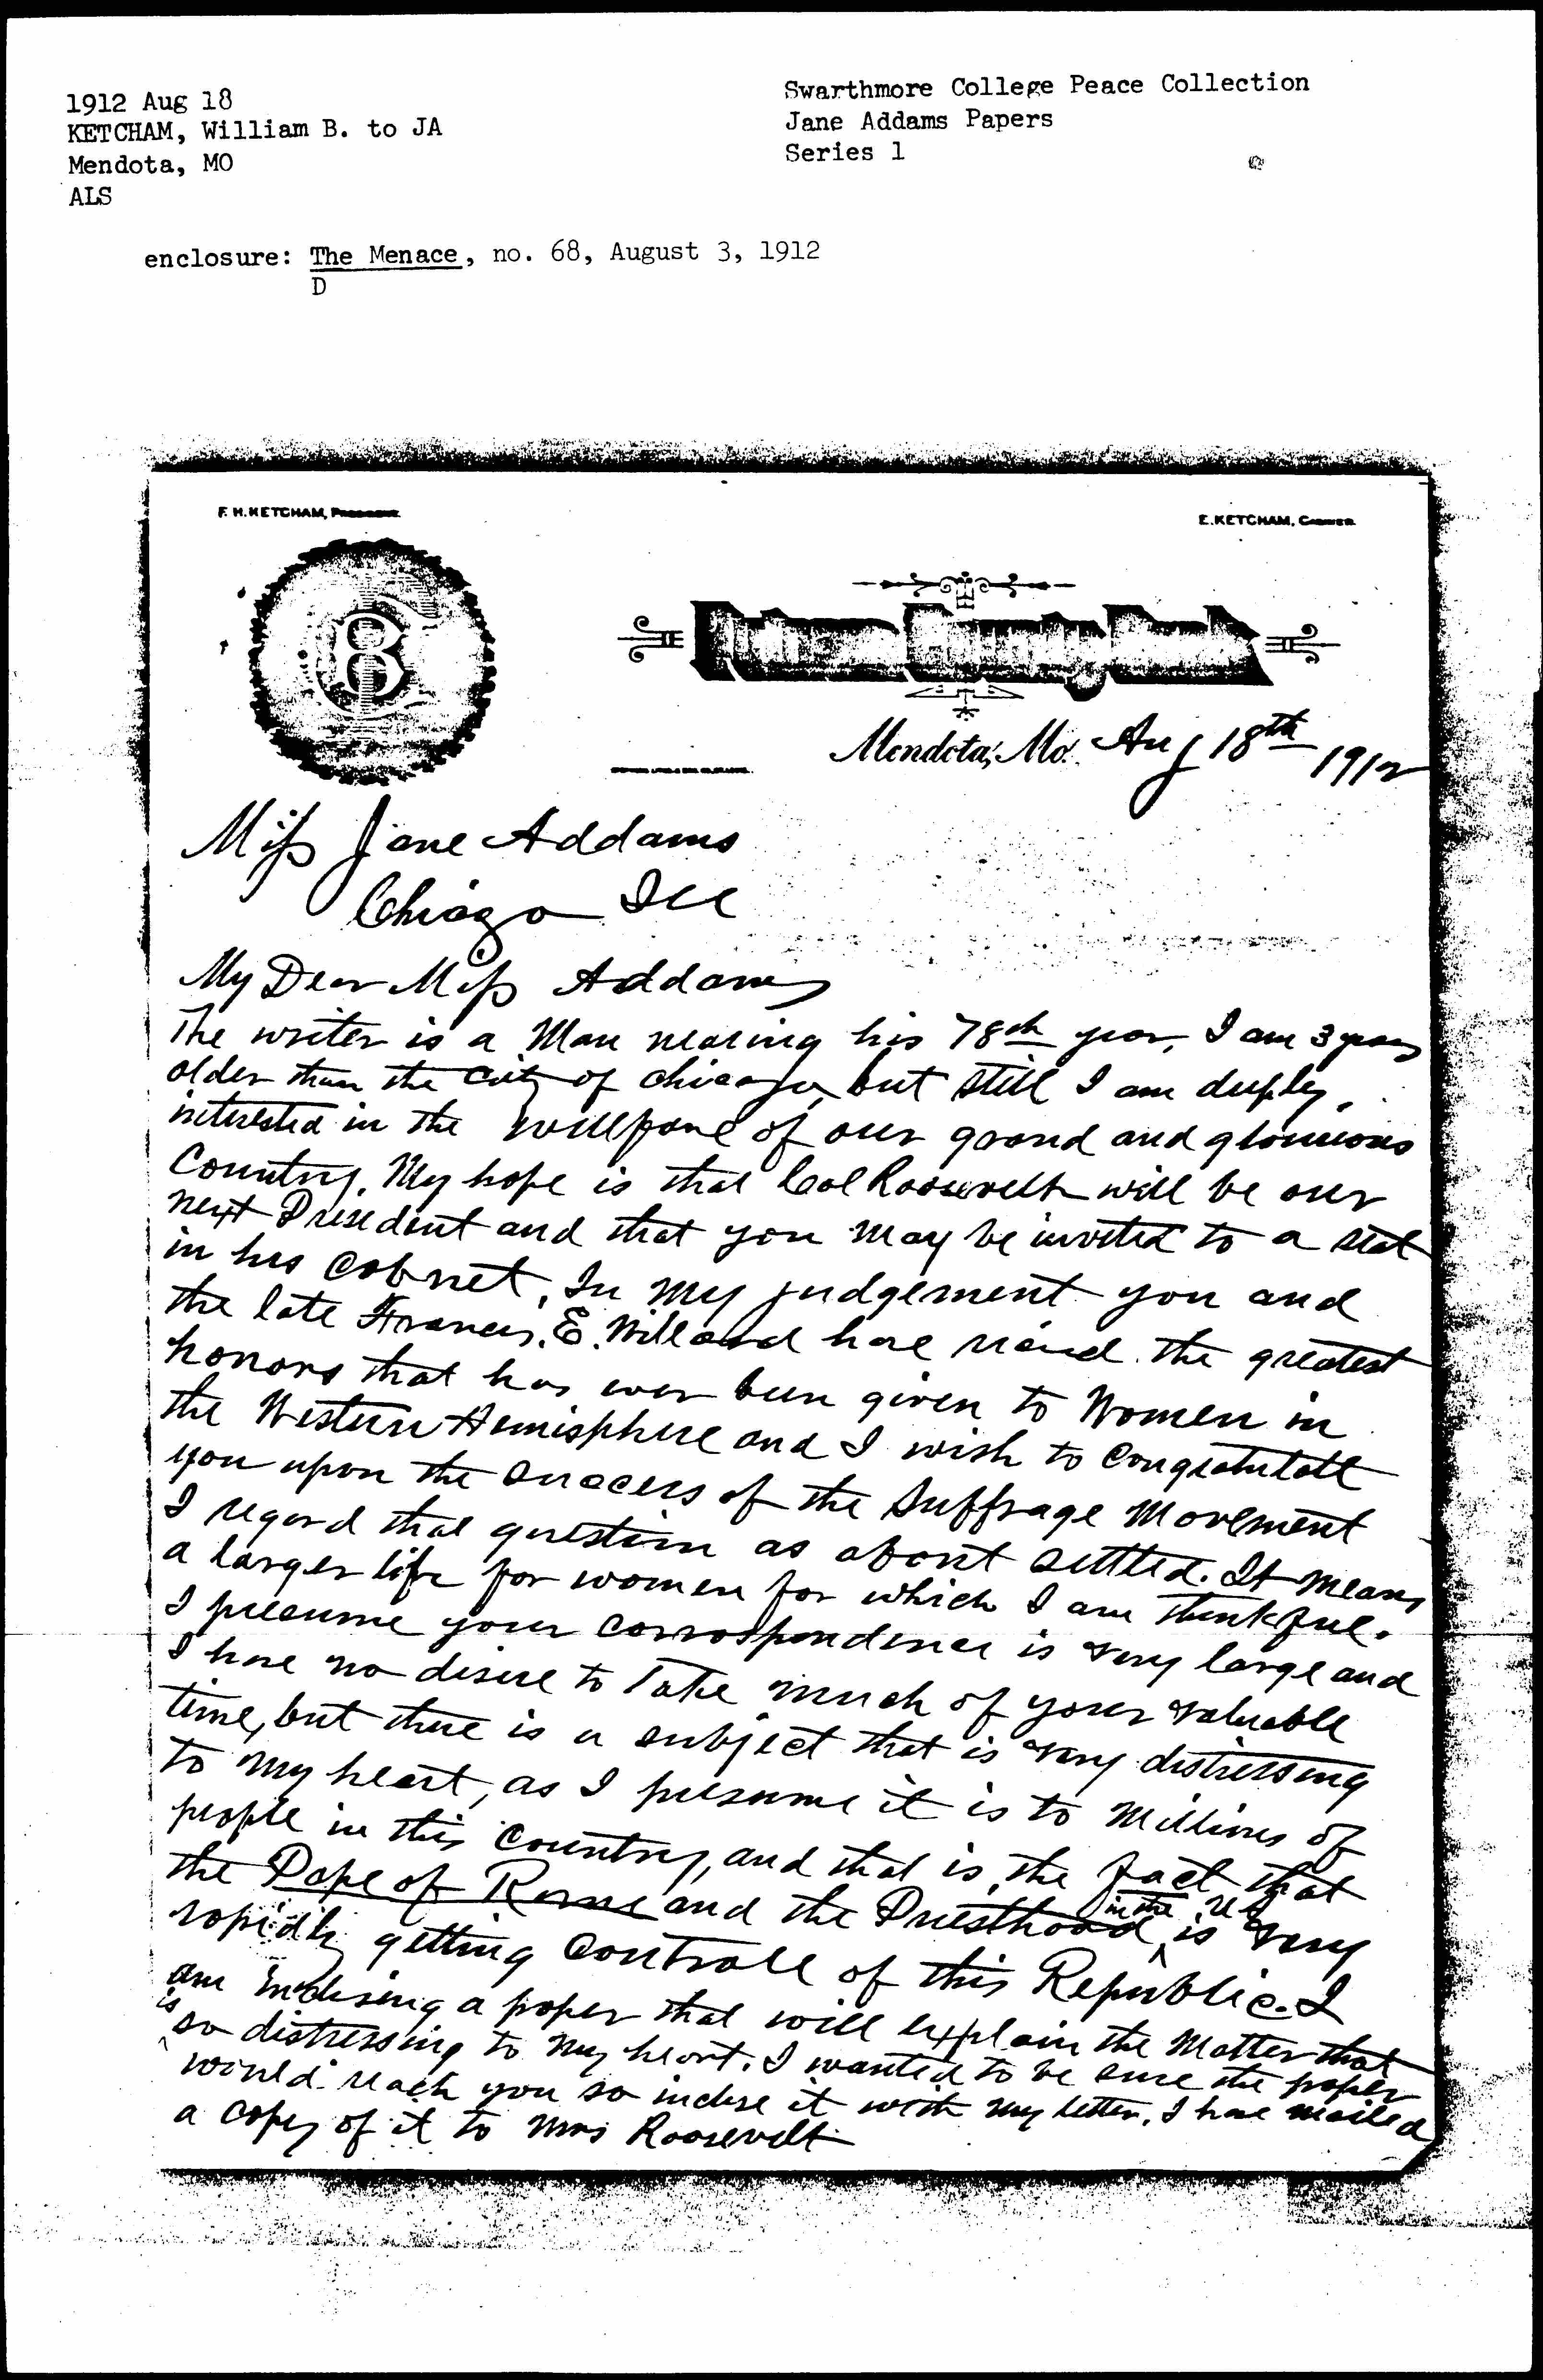 1912 Aug 18
KETCHAM, William B. to JA
Mendota, MO
ALS
enclosure: The Menace, no. 68, August 3, 1912
D
Swarthmore College Peace Collection
Jane Addams Papers
Series 1
F. H. KETCHAM,
E. KETCHAM,
B
Mendota, Mo. Aug 18th 1912
Miss Jane Addams
Chicago Ill
My Dear Miss Addams
The writer is a Man nearing his 78th year, I am 3 years
older than the City of Chicago, but still I am deeply
interested in the wellfare of our grand and glorious
Country. My hope is that Col Roosevelt will be our
next President and that you may be invited to a seat
in his Cabnet, In my judgement you and
the late Frances. E. Willard have the greatest
honors that has ever been given to Women in
the Western Hemisphere and I wish to Congratulate
you upon the Success of the Suffrage Movement
I regard that question as about settled. It means
a larger life for women for which I am thankful.
I presume your Corrospondence is very large and
I have no desire to Take much of your valuable
time, but there is a subject that is very distressing
to my heart, as I presume it is to Millions of
people in this Country, and that is, the fact that
the Pope of Rome and the Priesthood in the US is very
rapidly getting Controll of this Republic. I
am inclosing a paper that will explain the Matter that
is so distressing to my heart. I wanted to be sure the paper
would reach you so inclose it with my letter, I have mailed
a copy of it to Mrs Roosevelt